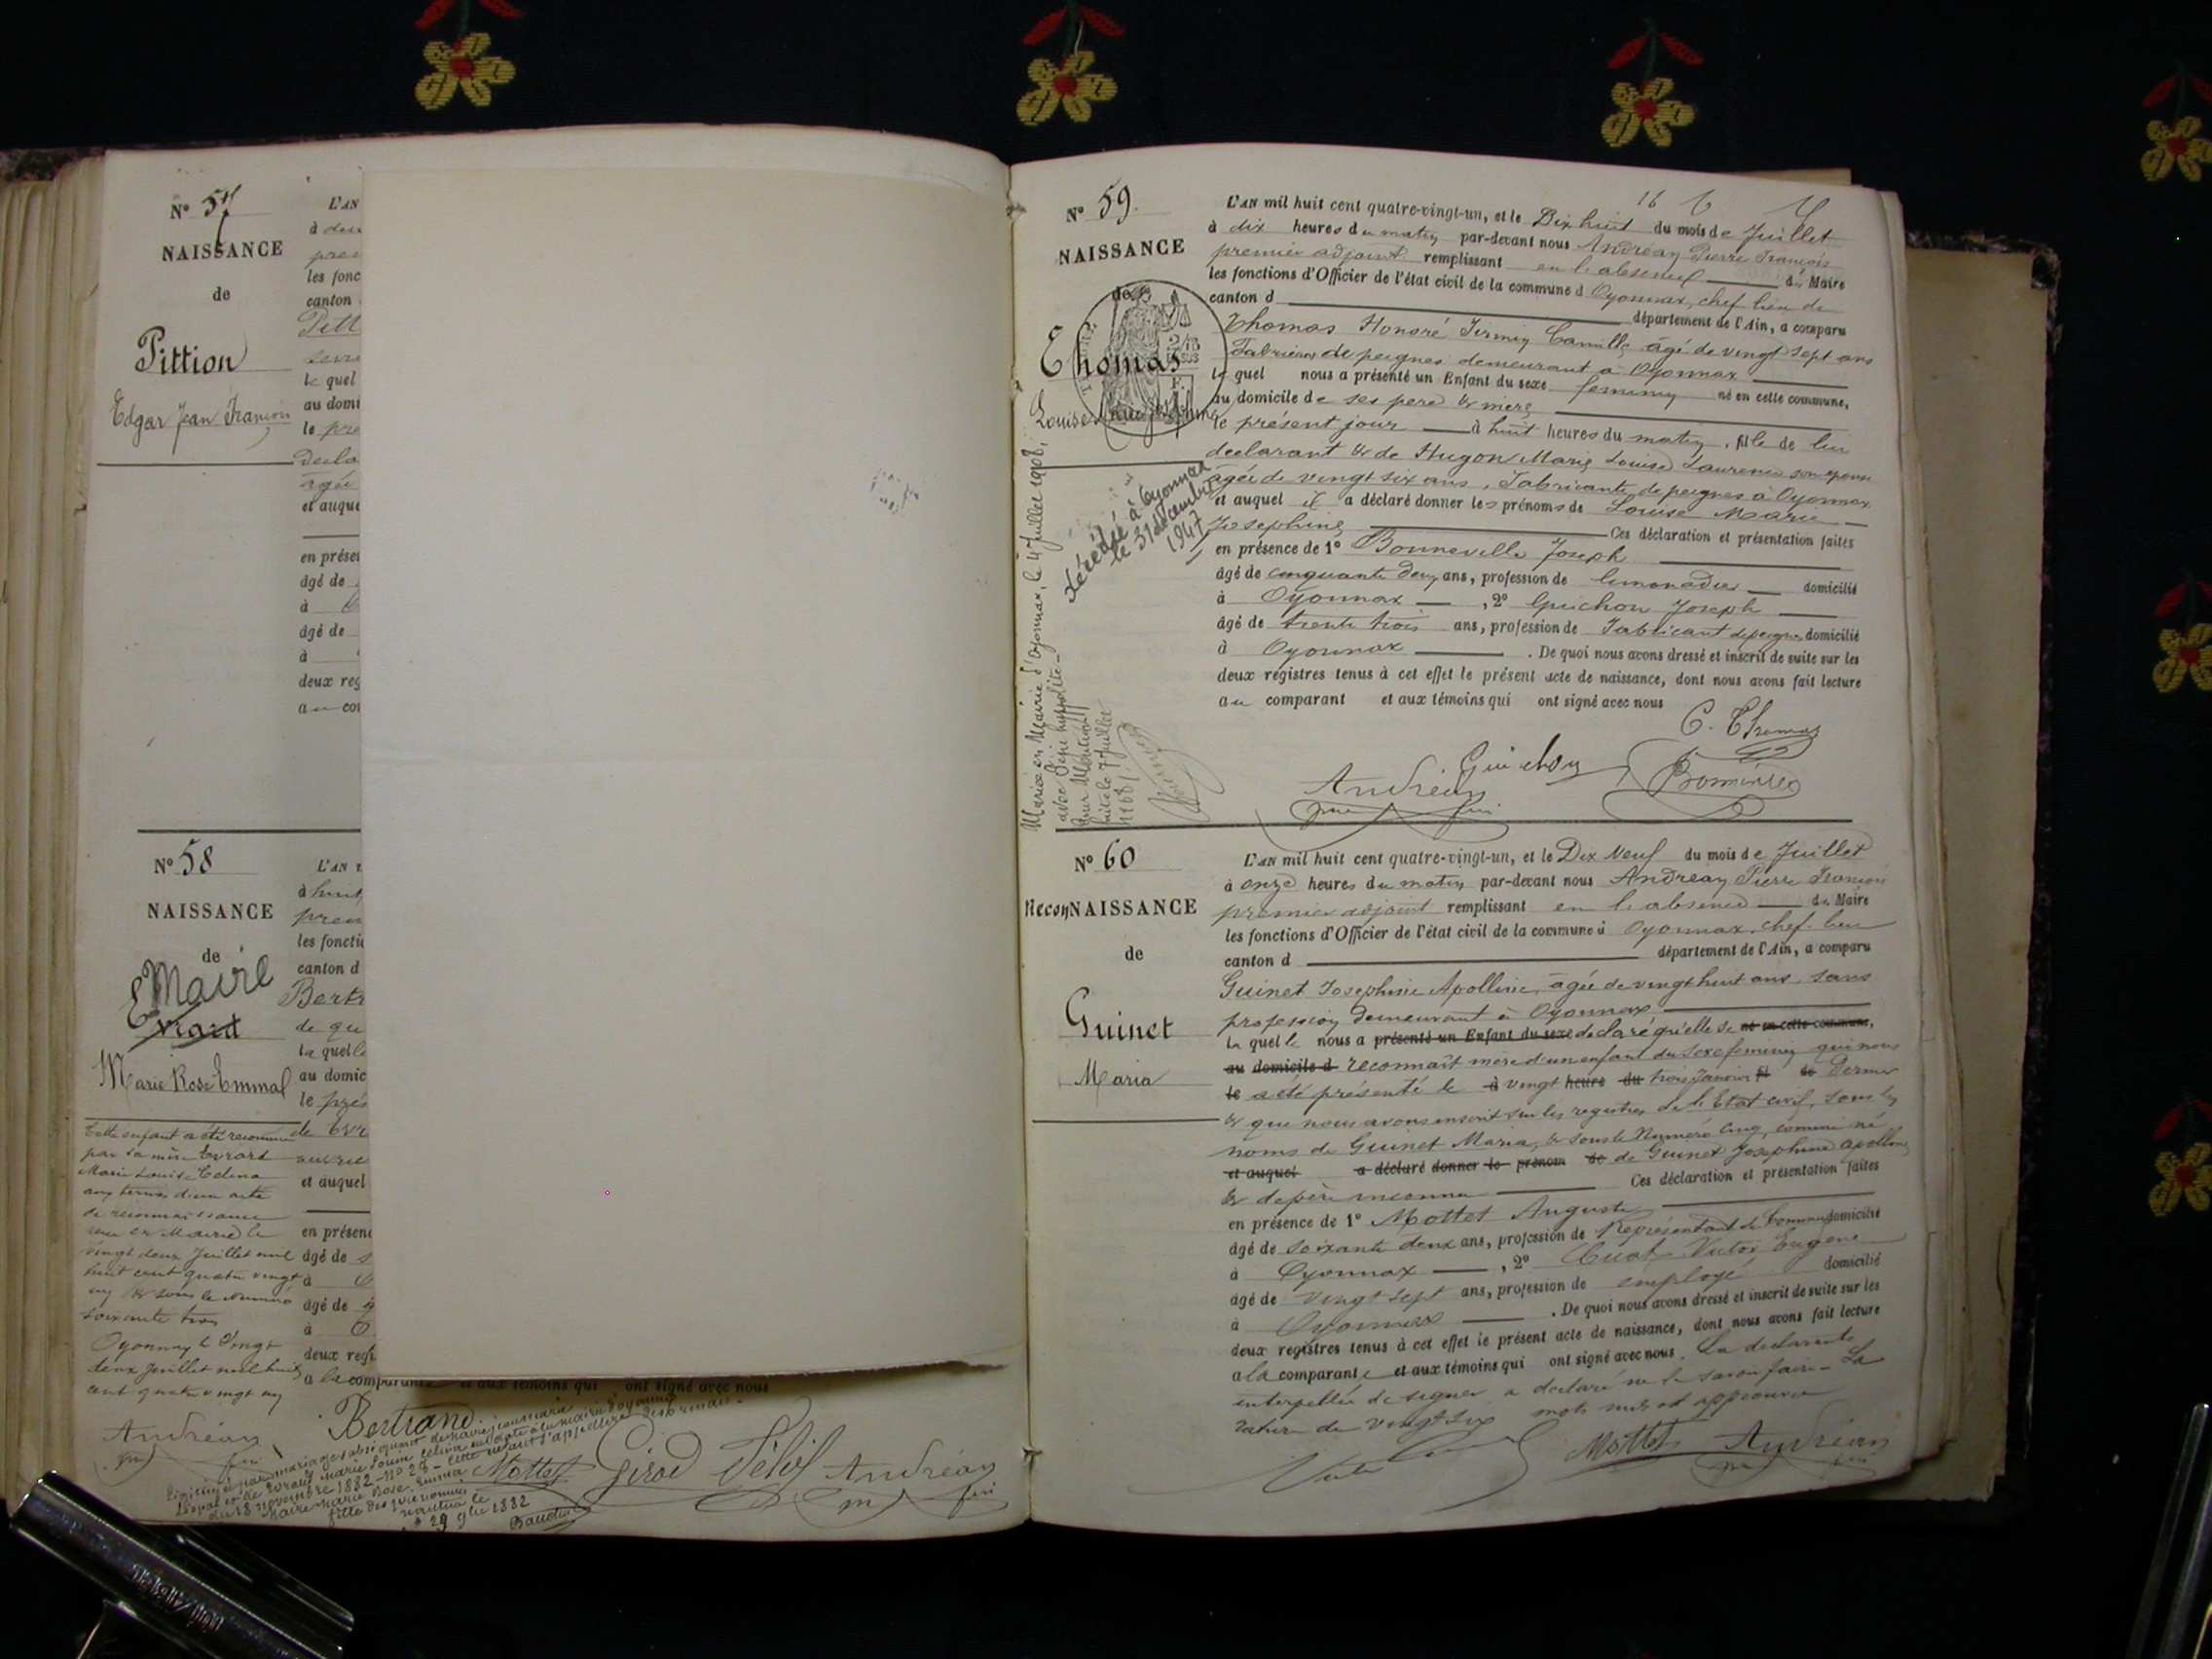 N° 57
NAISSANCE
de
Pittion
Edgar Jean François
L'AN
à deux
les fonc
canton
Pitt
le quel
au domi
le pré
décla
âgée
et auque
en présen
âgé de
à
âgé de
à
deux reg
au con
N° 58
NAISSANCE
de
Maire
Evrard
Marie Rose Emma
L'AN
à huit
prem
les foncti
canton d
Bertr
de qu
la quelle
au domic
le prés
de Evr
et auquel
en présen
âgé de
à
âgé de
à
deux regi
a la comparante et aux témoins qui ont signé avec nous
Cette enfant a été reconnue
par sa mère Evrard
Marie Louise Célina
aux termes d'un acte
de reconnaissance
reçu en Mairie le
vingt deux Juillet mil
huit cent quatre vingt
un & sous le numéro
soixante trois
Oyonnax le vingt
deux Juillet mil huit
cent quatre vingt un
Andréan
Bertrand
Mottet Girod Félix Andréan
du 18 novembre 1882 - N° 28 - cette enfant s'appellera désormais
Maire Marie Rose Emma
le 29 9bre 1882
N° 59
NAISSANCE
de
Thomas
Louise Marie Joséphine
Mariée en Mairie d'Oyonnax, le 4 Juillet 1908,
Pour Mention
faite le 7 Juillet
1908
Décédée à Oyonnax
le 31 décembre
1947
16
L'AN mil huit cent quatre-vingt-un, et le Dix huit du mois de Juillet
à dix heures du matin par-devant nous Andréan Pierre François
premier adjoint remplissant en l'absence du Maire
les fonctions d'Officier de l'état civil de la commune d Oyonnax, chef lieu de
canton d département de l'Ain, a comparu
Thomas Honoré Firmin Camille âgé de vingt sept ans
Fabricant de peignes demeurant à Oyonnax
le quel nous a présenté un Enfant du sexe feminin né en cette commune,
au domicile de ses père & mère
le présent jour à huit heures du matin, fille de lui
declarant & de Hugon Marie Louise Laurence son épouse
âgée de vingt six ans, Fabricante de peignes à Oyonnax
et auquel il a déclaré donner les prénoms de Louise Marie
Josephine Ces déclaration et présentation faites
en présence de 1° Bonneville Joseph
âgé de cinquante deux ans, profession de limonadier domicilié
à Oyonnax, 2° Guichon Joseph
âgé de trente trois ans, profession de Fabricant de peignes domicilié
à Oyonnax. De quoi nous avons dressé et inscrit de suite sur les
deux registres tenus à cet effet le présent acte de naissance, dont nous avons fait lecture
au comparant et aux témoins qui ont signé avec nous
C. Thomas
Guichon
Andréan
N° 60
ReconNAISSANCE
de
Guinet
Maria
L'AN mil huit cent quatre-vingt-un, et le Dix Neuf du mois de Juillet
à onze heures du matin par-devant nous Andréan Pierre François
premier adjoint remplissant en l'absence du Maire
les fonctions d'Officier de l'état civil de la commune d Oyonnax, chef lieu
canton d département de l'Ain, a comparu
Guinet Josephine Apolline, âgée de vingt huit ans, sans
profession demeurant à Oyonnax
la quelle nous a présenté un Enfant du sexe declaré qu'elle se né en cette commune,
au domicile d reconnaît mère d'un enfant du sexe feminin qui nous
le a été présenté le à vingt heure du trois Janvier fil de Dernier
& que nous avons inscrit sur les registres de l'Etat civil, sous les
noms de Guinet Maria, & sous le Numéro cinq, comme né
et auquel a déclaré donner le prénom de de Guinet Josephine Apolline
& de père inconnu Ces déclaration et présentation faites
en présence de 1° Mottet Auguste
âgé de soixante deux ans, profession de Représentant de Commerce domicilié
à Oyonnax, 2° Cuat Victor Eugène
âgé de vingt sept ans, profession de employé domicilié
à Oyonnax. De quoi nous avons dressé et inscrit de suite sur les
deux registres tenus à cet effet le présent acte de naissance, dont nous avons fait lecture
a la comparante et aux témoins qui ont signé avec nous. La declarante
interpellée de signer a declaré ne le savoir faire - La
rature de vingt six mots nuls est approuvée
Mottet Andréan